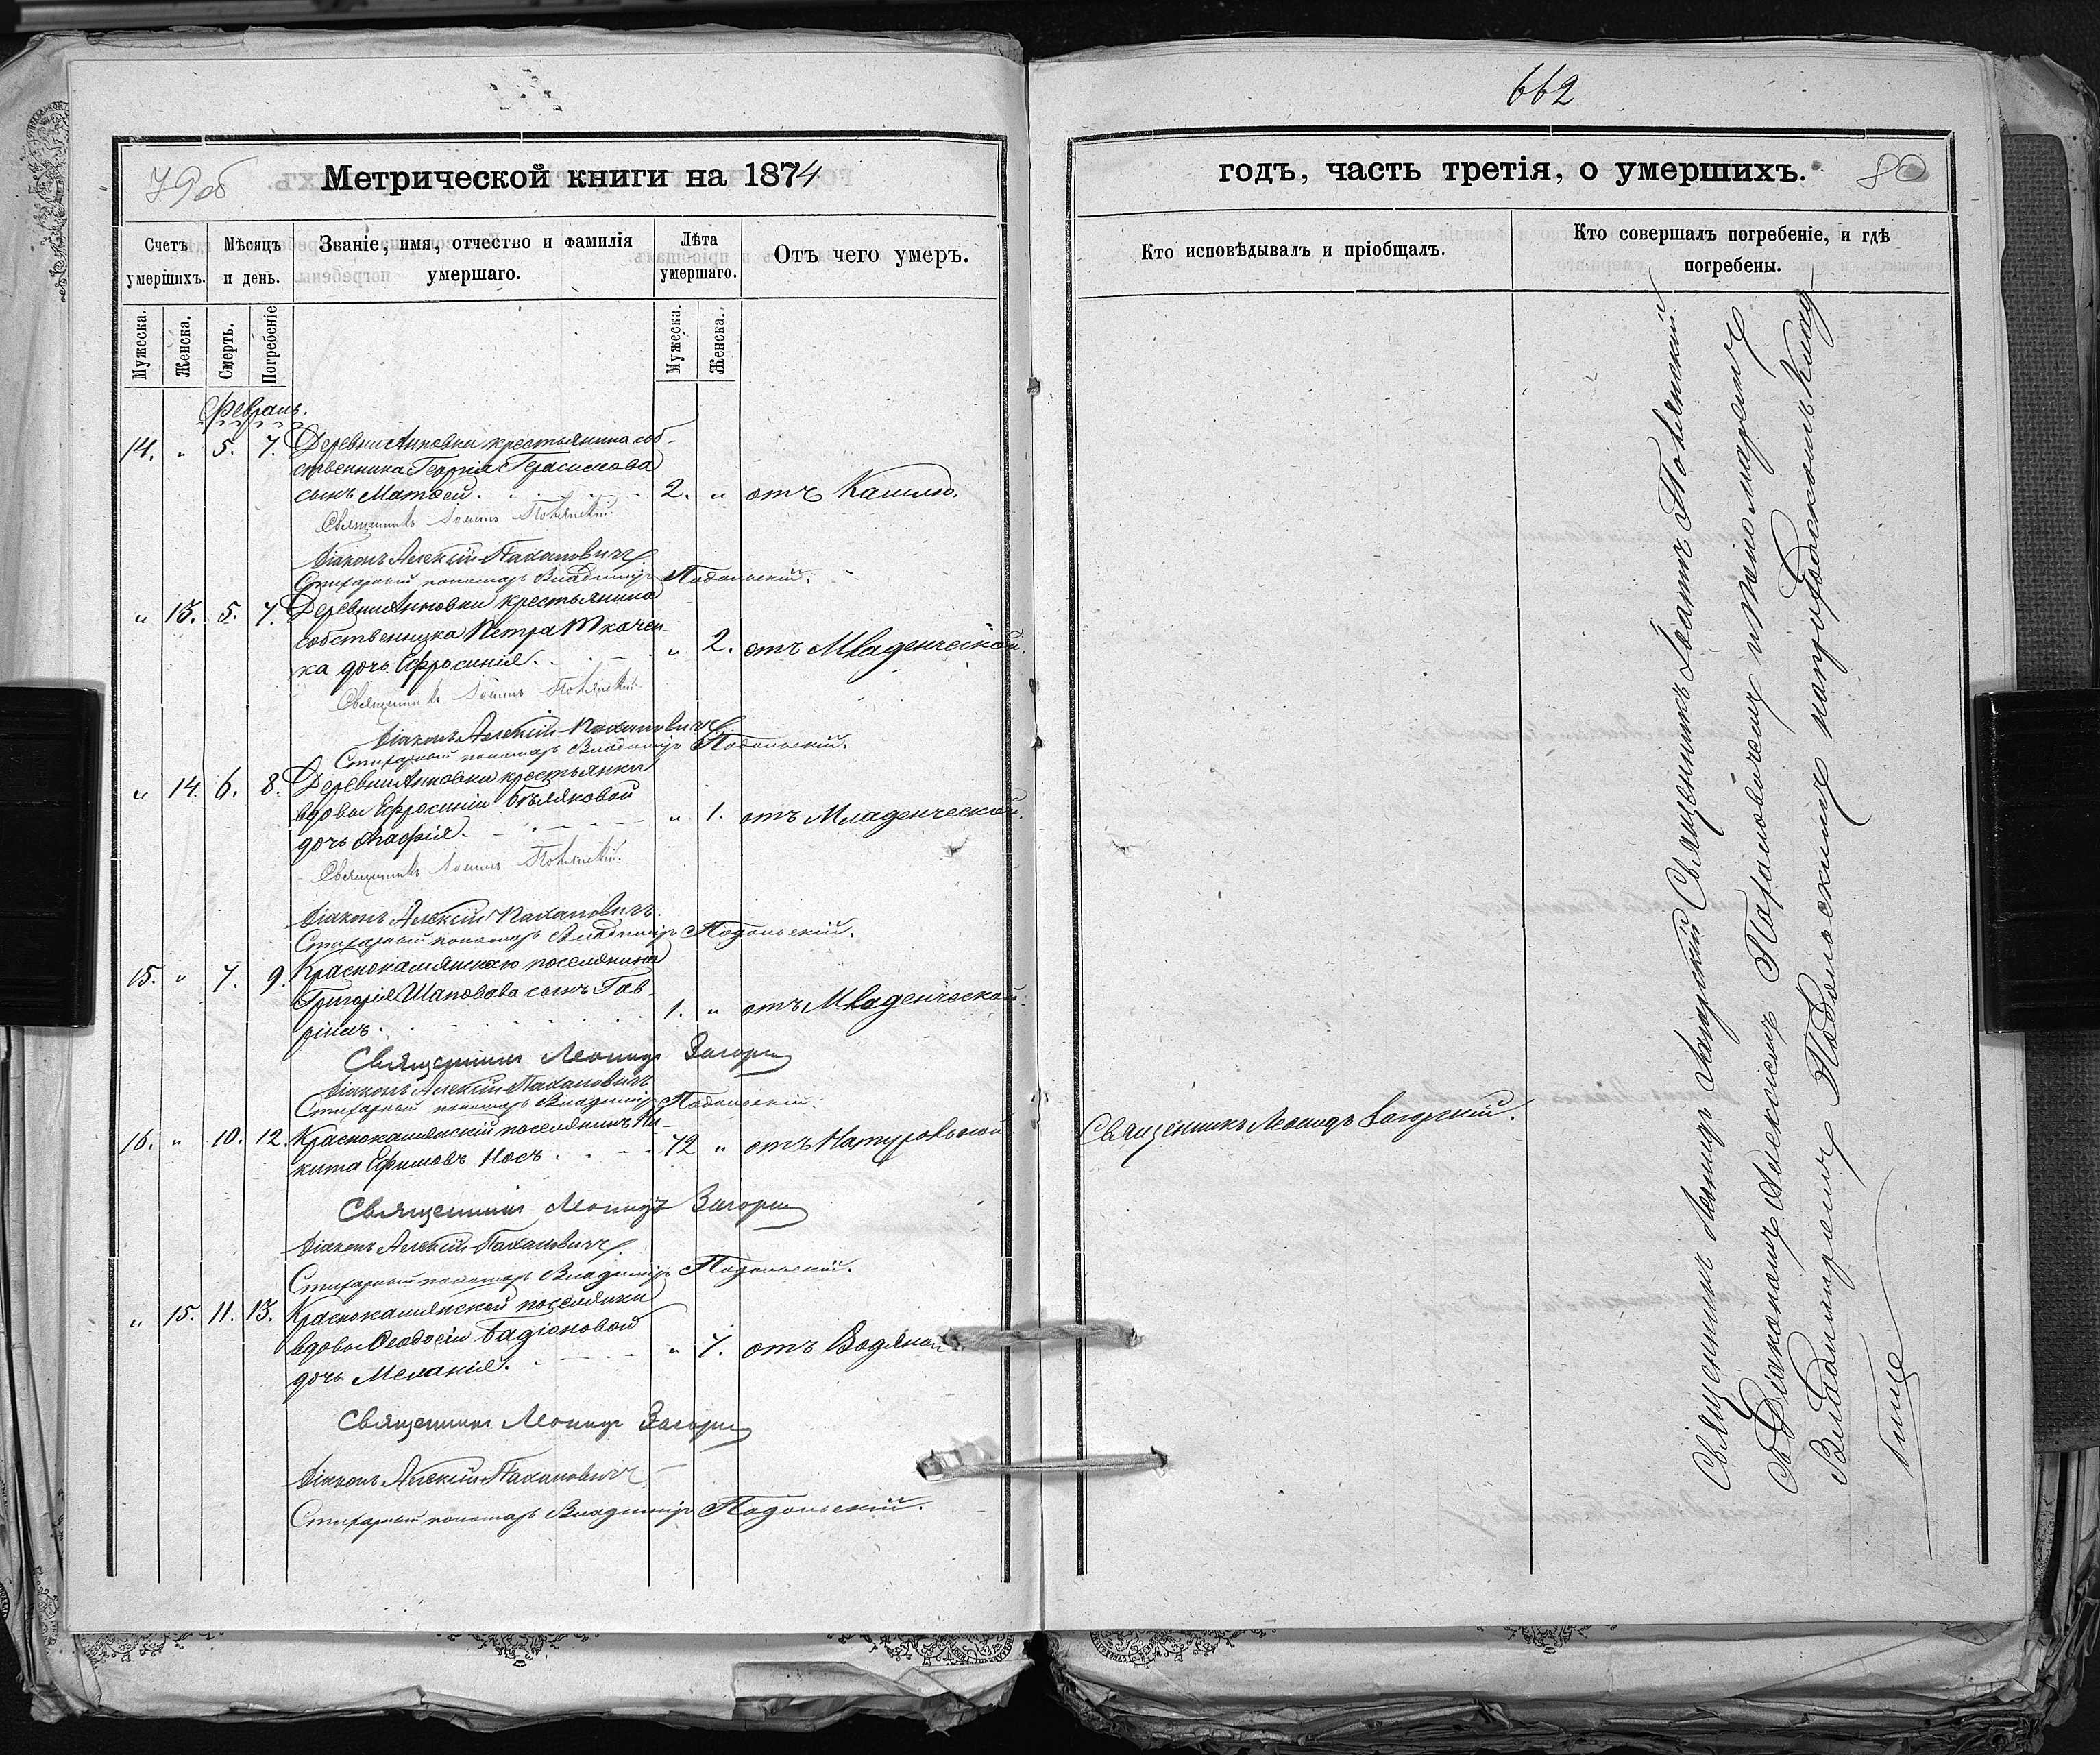 79об
Метрической книги на 1874
Счетъ умершихъ.
Мѣсяцъ и день.
Званіе, имя, отчество и фамилія умершаго.
Лѣта умершаго.
Отъ чего умеръ.
Мужеска.
Женска.
Смерть.
Погребеніе
Мужеска.
Женска.
Февраль.
14. " 5. 7. Деревни Анновки крестьянина соб-
ственника Георгія Герасимова
сынъ Матѳей. 2. " отъ Кашлю.
Священникъ Іоаннъ
Діаконъ Алексій Паханович
Стихарный пономарь Владиміръ Подольскій.
" 13. 5. 7. Деревни Анновки крестьянина
собственника Петра Ткачен-
ка дочь Ефросинія. " 2. отъ Младенческой.
Священникъ Іоаннъ
Діаконъ Алексій Паханович
Стихарный пономарь Владиміръ Подольскій.
" 14. 6. 8. Деревни Анновки крестьянки
вдовы Ефросиніи Бѣляковой
дочь Агафія. " 1. отъ Младенческой.
Священникъ Іоаннъ
Діаконъ Алексій Пахановичъ.
Стихарный пономарь Владиміръ Подольскій.
15. " 7. 9. Краснокаменскаго поселянина
Григорія Шаповала сынъ Гав-
ріилъ. 1. " отъ Младенческой.
Священникъ Леонидъ
Діаконъ Алексій Пахановичъ
Стихарный пономарь Владиміръ Подольскій.
16. " 10. 12. Краснокаменскій поселянинъ Ни-
кита Ефимовъ Носъ. 72 " отъ Натуральной
Священникъ Леонидъ
Діаконъ Алексій Паханович
Стихарный пономарь Владиміръ Подольскій.
" 15. 11. 13. Краснокаменской поселянки
вдовы Ѳеодосіи Бадіоновой
дочь Меланія. " 7. отъ Водяной
Священникъ Леонидъ
Діаконъ Алексій Паханович
Стихарный пономарь Владиміръ Подольскій.
662
годъ, часть третія, о умершихъ.
80
Кто исповѣдывалъ и пріобщалъ.
Кто совершалъ погребеніе, и гдѣ погребены.
Священникъ Леонидъ Загорскій.
Священникъ Леонидъ Загорскій Священникъ Іоаннъ
съ Діакономъ Алексіемъ Пахановичемъ и Пономаремъ
Владиміромъ Подольскимъ на приходскомъ Клад-
бищѣ